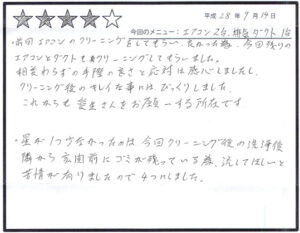 ★★★★☆
平成 28年 9月 19日
今回のメニュー：エアコン2台、換気ダクト1台
・前回エアコンのクリーニングをしてもらい、良かった為、今回残りの
エアコンとダクトもクリーニングしてもらいました。
相変わらずの手際の良さと応対は感心しましたし、
クリーニング後のキレイな事には、びっくりしました。
これからも愛生さんをお願いする所存です
・星が1つ少なかったのは今回クリーニング後の洗浄後
隣から玄関前にゴミが残っている為、流してほしいと
苦情が有りましたので4つにしました。